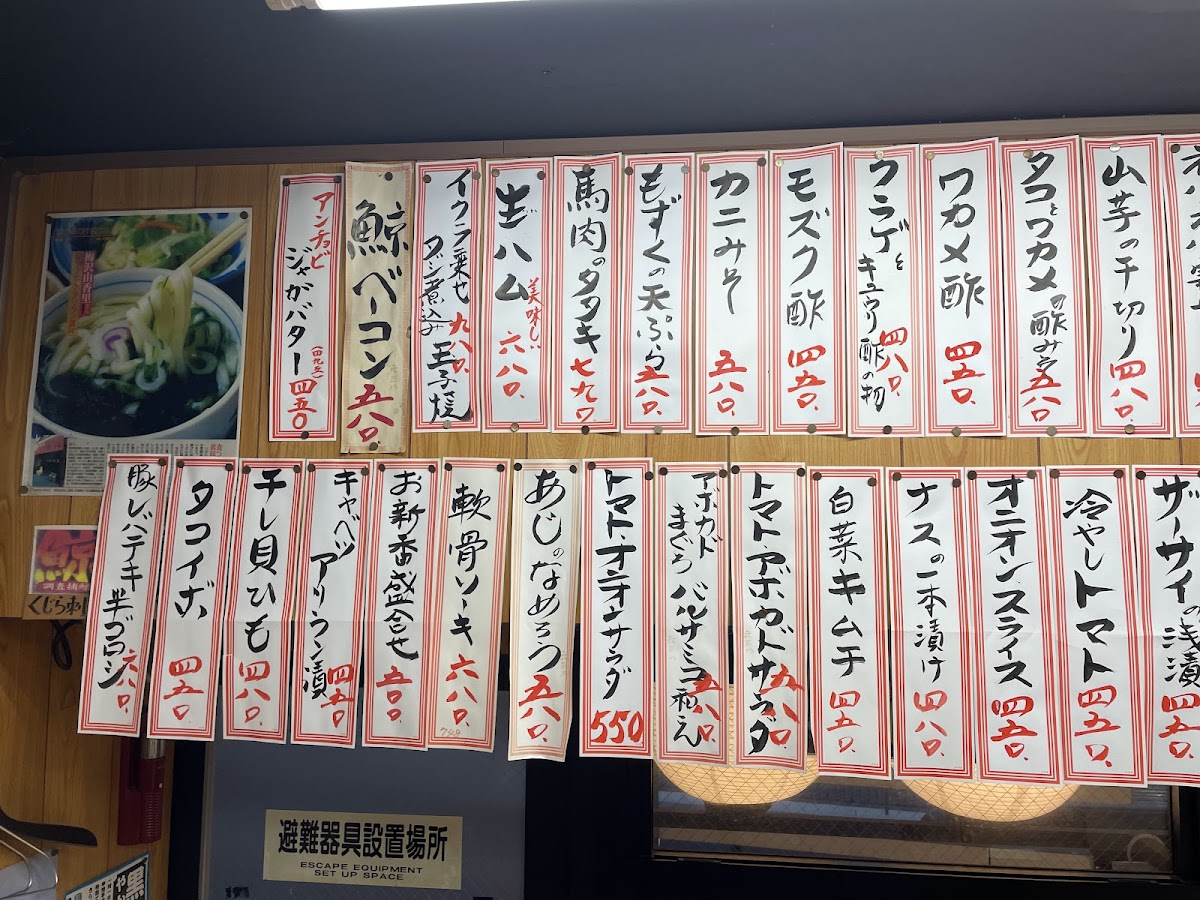 山芋の千切り 四八〇.
タコとワカメの酢みそ 五八〇
ワカメ酢 四五〇.
クラゲとキュウリ酢の物 四八〇.
モズク酢 四五〇.
カニみそ 五八〇.
もずくの天ぷら 五八〇.
馬肉のタタキ 七九〇
生ハム 美味しい 六八〇.
イクラ乗せ 九八〇.
鯨ベーコン 五八〇.
アンチョビ
ジャガバター (四九五) 四五〇
ザーサイの浅漬 四五〇
冷やしトマト 四五〇.
オニオンスライス 四五〇.
ナスの一本漬け 四八〇.
白菜キムチ 四五〇.
トマト・アボカドサラダ 五八〇.
アボカド
まぐろ バルサミコ和え 五八〇.
トマト・オニオンサラダ 550
あじのなめろう 五八〇.
軟骨ソーキ 六八〇.
お新香盛合せ 五〇〇
キャベツ
アリラン漬 四五〇
干し貝ひも 四八〇.
タコイボ 四五〇.
豚レバテキ 六八〇.
くじら刺し
避難器具設置場所
ESCAPE EQUIPMENT
SET UP SPACE